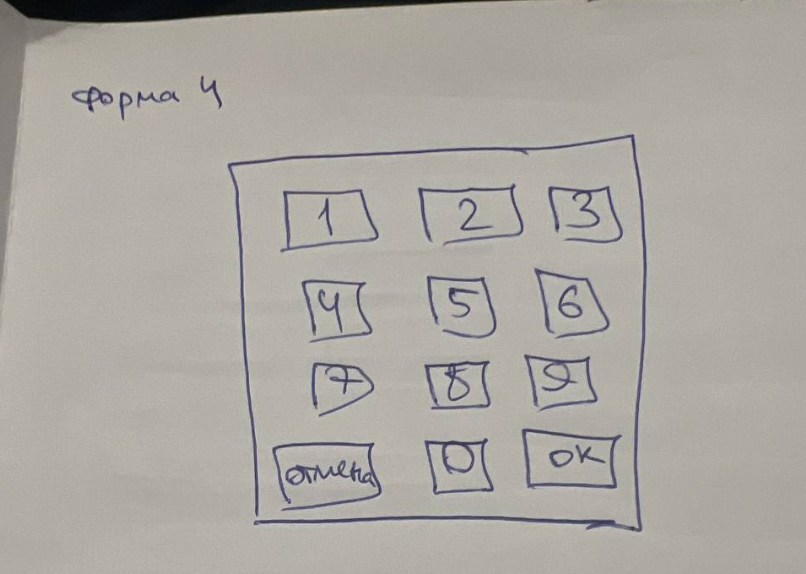 форма 4
1 2 3
4 5 6
7 8 9
отмена 0 ок